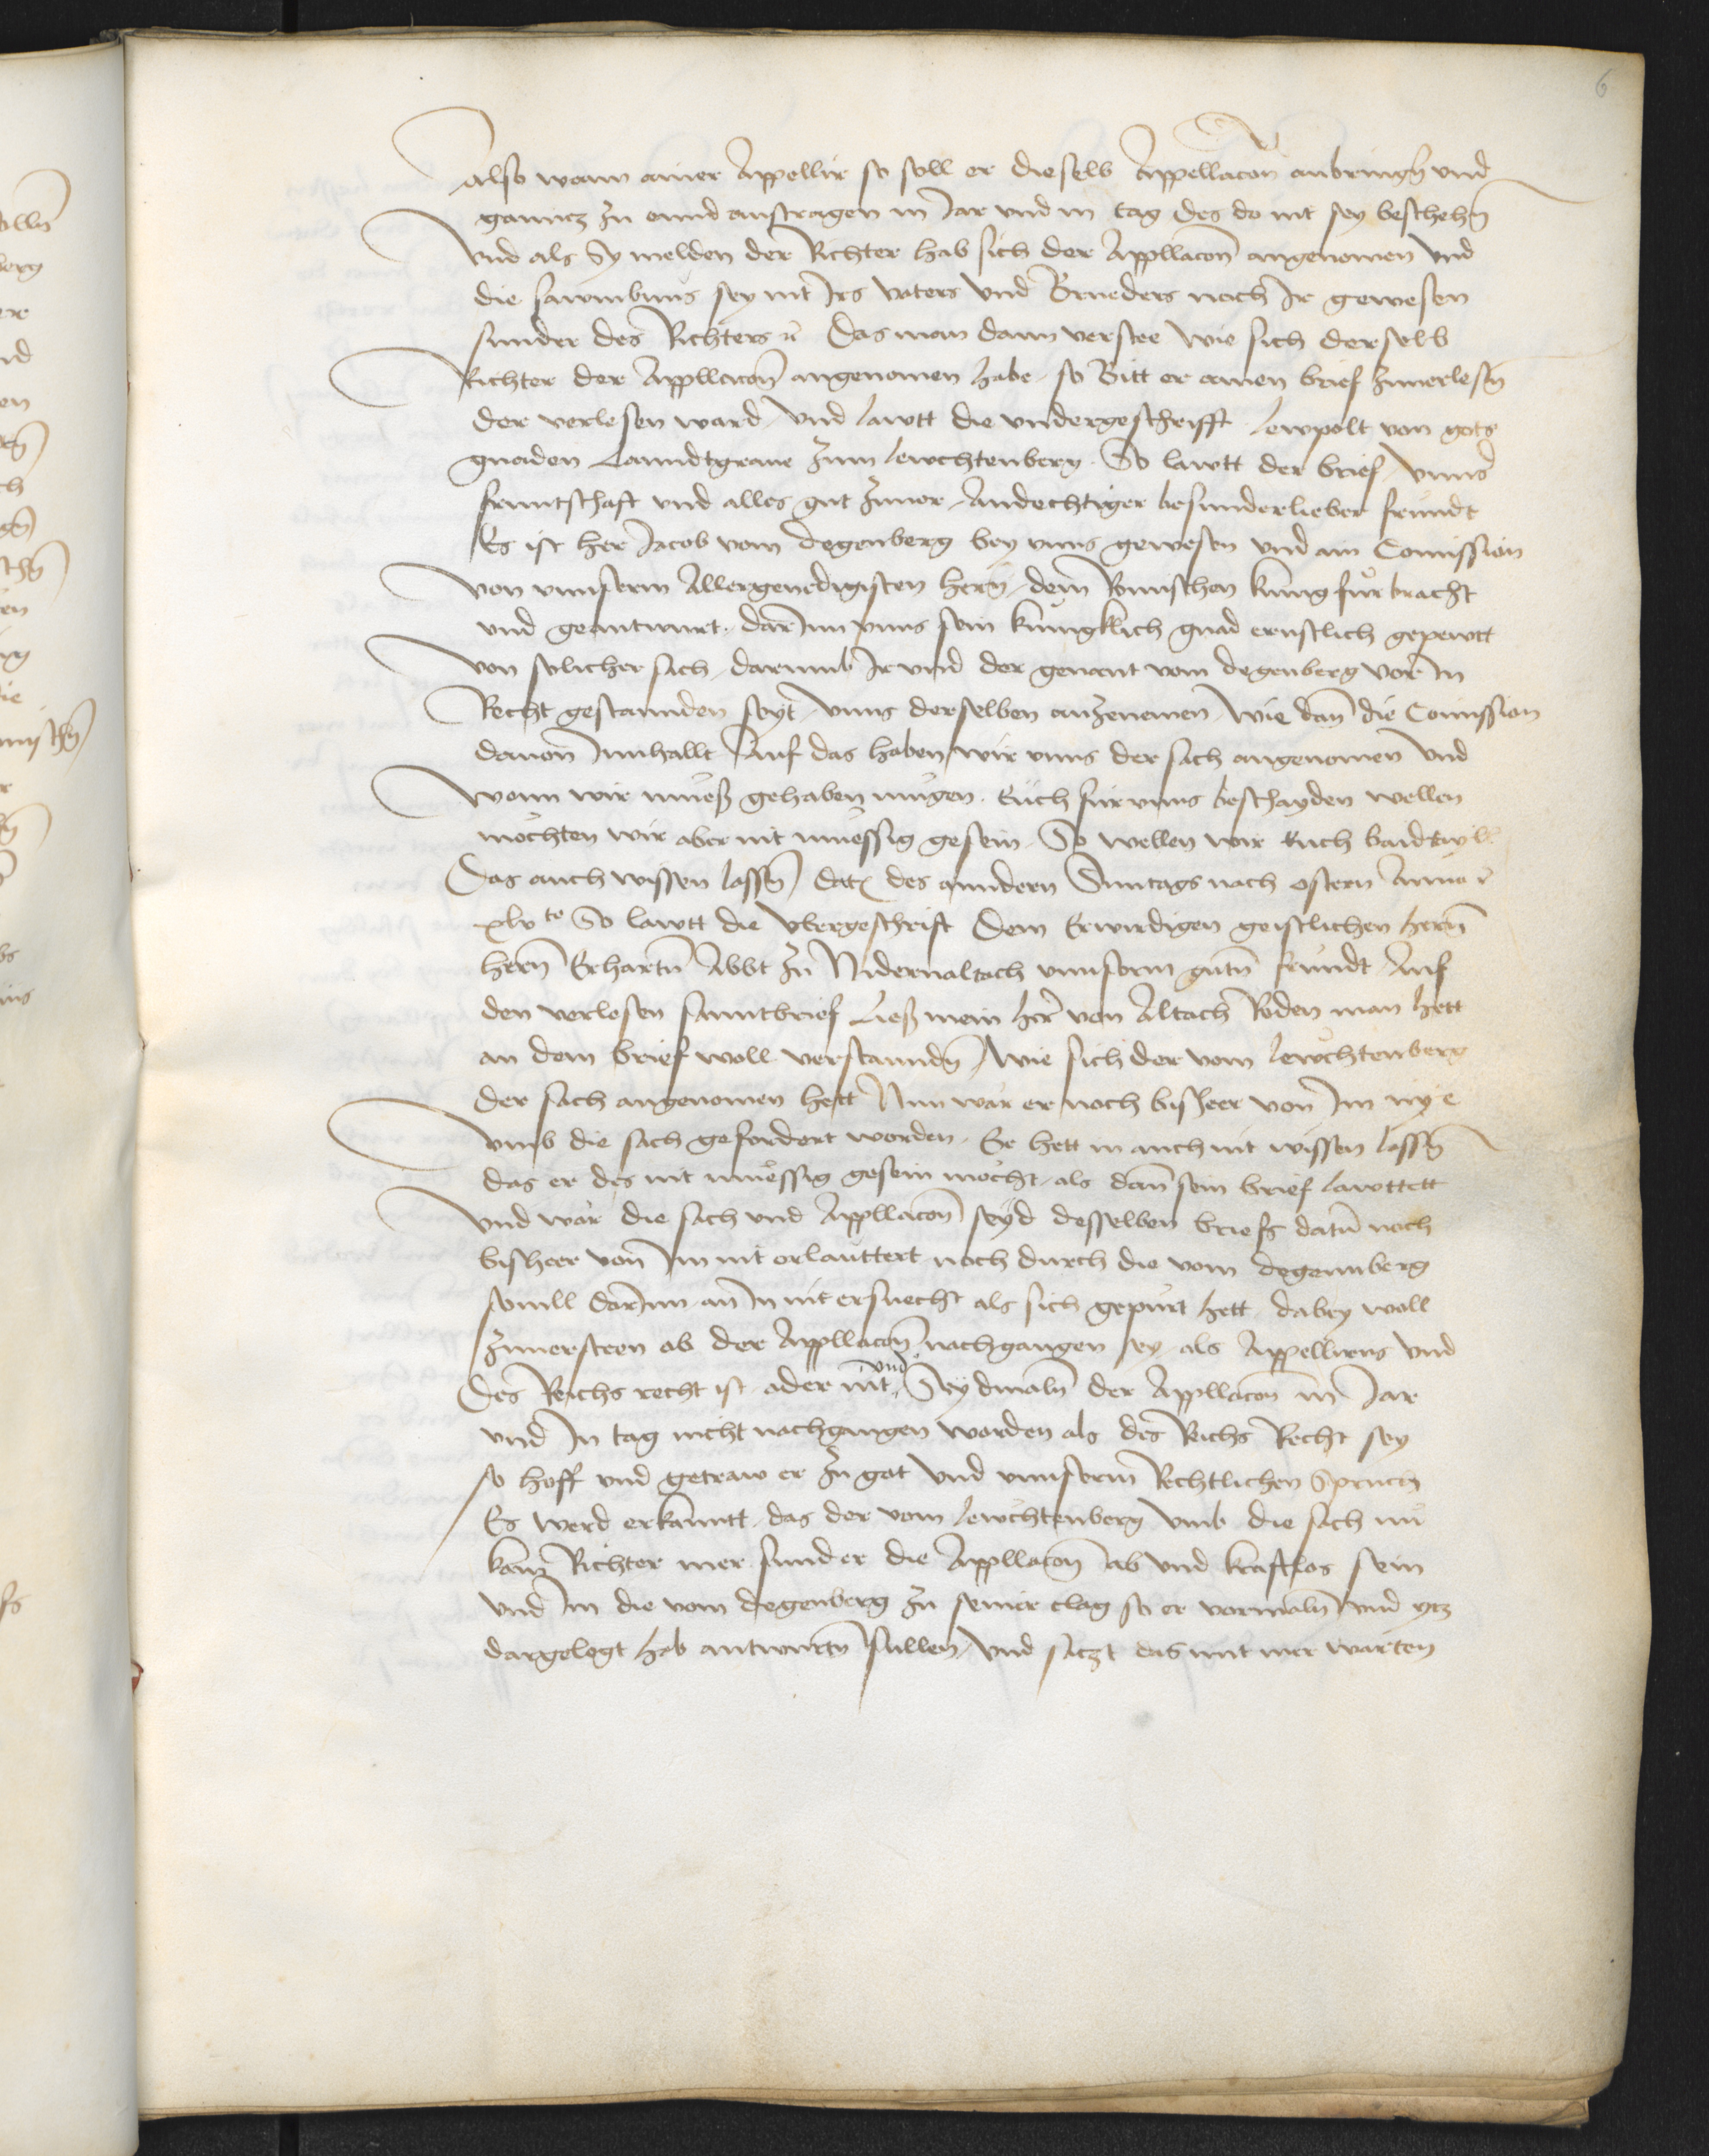 6
Also wann ainer Appellir so soll er dieselb Appellacōn anbringn̄ und
ganntz zu ennd austragen in Jar und in tag des do nit sey beschehn̄
Und als Sy melden der Richter hab sich der Appllacōn angenomen und
die sawmbnus sey nit Irs vaters und Brueders noch Ir gewesen
sunder des Richters ꝛc Das man dann verstee wie sich derselb
Richter der Appllacōn angenomen habe, so Bitt er ainen brief zuuerlesn̄
der verlesen ward, und lawtt die undergeschrifft lewpolt von gots
gnaden Lanndtgraue zum lewchtenberg. So lawtt der brief, unns
fruntschaft und alles gut zuuor, Andechtiger besunderlieber freundt
Es ist her Jacob vom Degenberg bey unns gewesen und ain Comission
von unnserm Allergenedigisten hern̄, dem Romischen kunig fürbracht
und geantwurt. darInn unns sein kunigklich gnad ernstlich gepewtt
von solicher sach, darumb Ir und der genant vom Degenberg vor In
Recht gestannden seyt, unns derselben anzenemen, wie dan̄ die Comission
dauon Innhallt Auf das haben wir unns der sach angenomen und
wenn wir mueß gehaben mugen. Euch für unns beschayden wellen
mochten wir aber nit muessig gesein. So wellen wir Euch baidtail
Das auch wissen lassn̄ dat des anndern Suntags nach ostern Anno ꝛc
xlv to So lawtt die ubergeschrift Dem Erwirdigen geistlichen hern̄
hern̄ Erhartn̄ Abbt zu Nidernaltach unnserm gutn̄ freundt Auf
den verlesen sanntbrief Ließ mein her von Altach Reden man hett
an dem brief woll verstanndn̄, wie sich der vom lewchtenberg
der sach angenomen hett Nun wär er noch bisheer von Im nye
umb die sach gefordert worden. Er hett in auch nit wissen lassn̄
das er des nit muessig gesein mocht, als dan̄ sein brief lawttett
Und wär die sach und Appllacōn seyd desselben briefs datū noch
bisheer von Im nit erlauttert noch durch die vom Degennberg
souill darInn an In nit ersuecht als sich gepurt hett, dabey woll
zuuersteen ob der Appllacōn nachgangen sey, als Appellirens und
Des Reichs recht ist, oder nit, und Seydmaln̄ der Appllacōn in Jar
und In tag nicht nachgangen worden als des Reichs Recht sey
so hoff und getraw er zu got und unnserm Rechtlichen Spruch
Es werd erkanntt, das der vom lewchtenberg umb die sach nu
kain Richter mer sunder die Appllacōn ab und kraftlos sein
und Im die vom Degenberg zu seiner clag so er vormaln̄ und ytz
dargelegt hab antwurtn̄ sullen, und satzt das mit mer warten